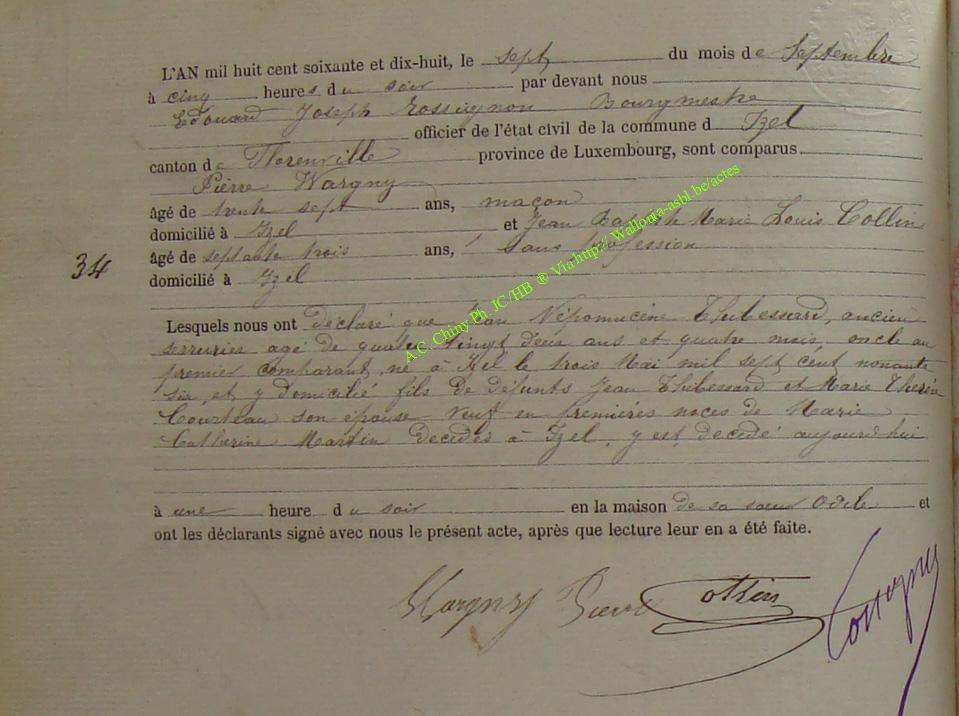 L'AN mil huit cent soixante et dix-huit, le sept du mois de Septembre
à cinq heures du soir par devant nous
Edouard Joseph Rossignon Bourgmestre
officier de l'état civil de la commune d Izel
canton de Florenville province de Luxembourg, sont comparus
Pierre Wargny
âgé de trente sept ans, maçon
domicilié à Izel et Jean Marie Louis Collin
âgé de septante trois ans, sans profession
34
domicilié à Izel
A.C. Chiny Ph. JC/HB ® Via http:// Wallonia-asbl.be/actes
Lesquels nous ont déclaré que Jean Népomucène Thibessard, ancien
serrurier agé de quatre vingt deux ans et quatre mois, oncle au
premier comparant, né à Izel le trois Mai mil sept cent nonante
six, et y domicilié fils de défunts Jean Thibessard et Marie
Courteau son épouse Veuf en premières noces de Marie
Catherine Martin décédés à Izel, y est décédé aujourd'hui
à une heure du soir en la maison de sa sœur Odile et
ont les déclarants signé avec nous le présent acte, après que lecture leur en a été faite.
Wargny Pierre Collin